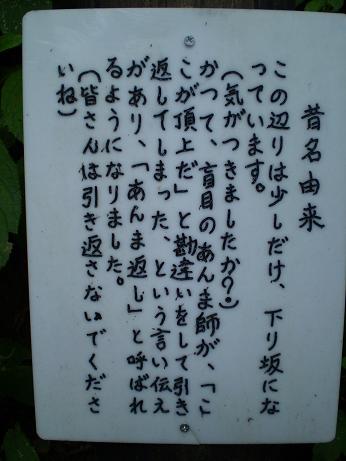 昔名由来
この辺りは少しだけ、下り坂にな
っています。
(気がつきましたか?)
かつて、盲目のあんま師が、「こ
こが頂上だ」と勘違いをして引き
返してしまった、という言い伝え
があり、「あんま返し」と呼ばれ
るようになりました。
(皆さんは引き返さないでくださ
いね)